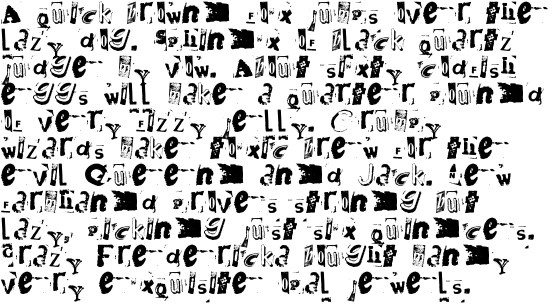 A quick brown fox jumps over the
lazy dog. Sphinx of black quartz
judge my vow. About sixty codfish
eggs will make a quarter pound
of very fizzy jelly. Grumpy
wizards make toxic brew for the
evil Queen and Jack. A few
farmhand proves strong but
lazy, picking just six quinces.
Crazy Fredericka bought many
very exquisite opal jewels.